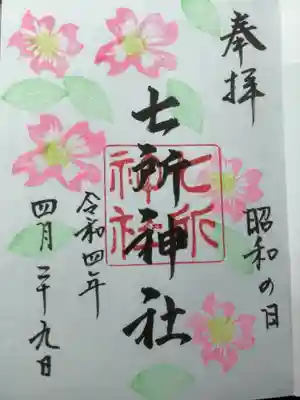 奉拝
昭和の日
七所神社
七所
神社
令和四年
四月二十九日